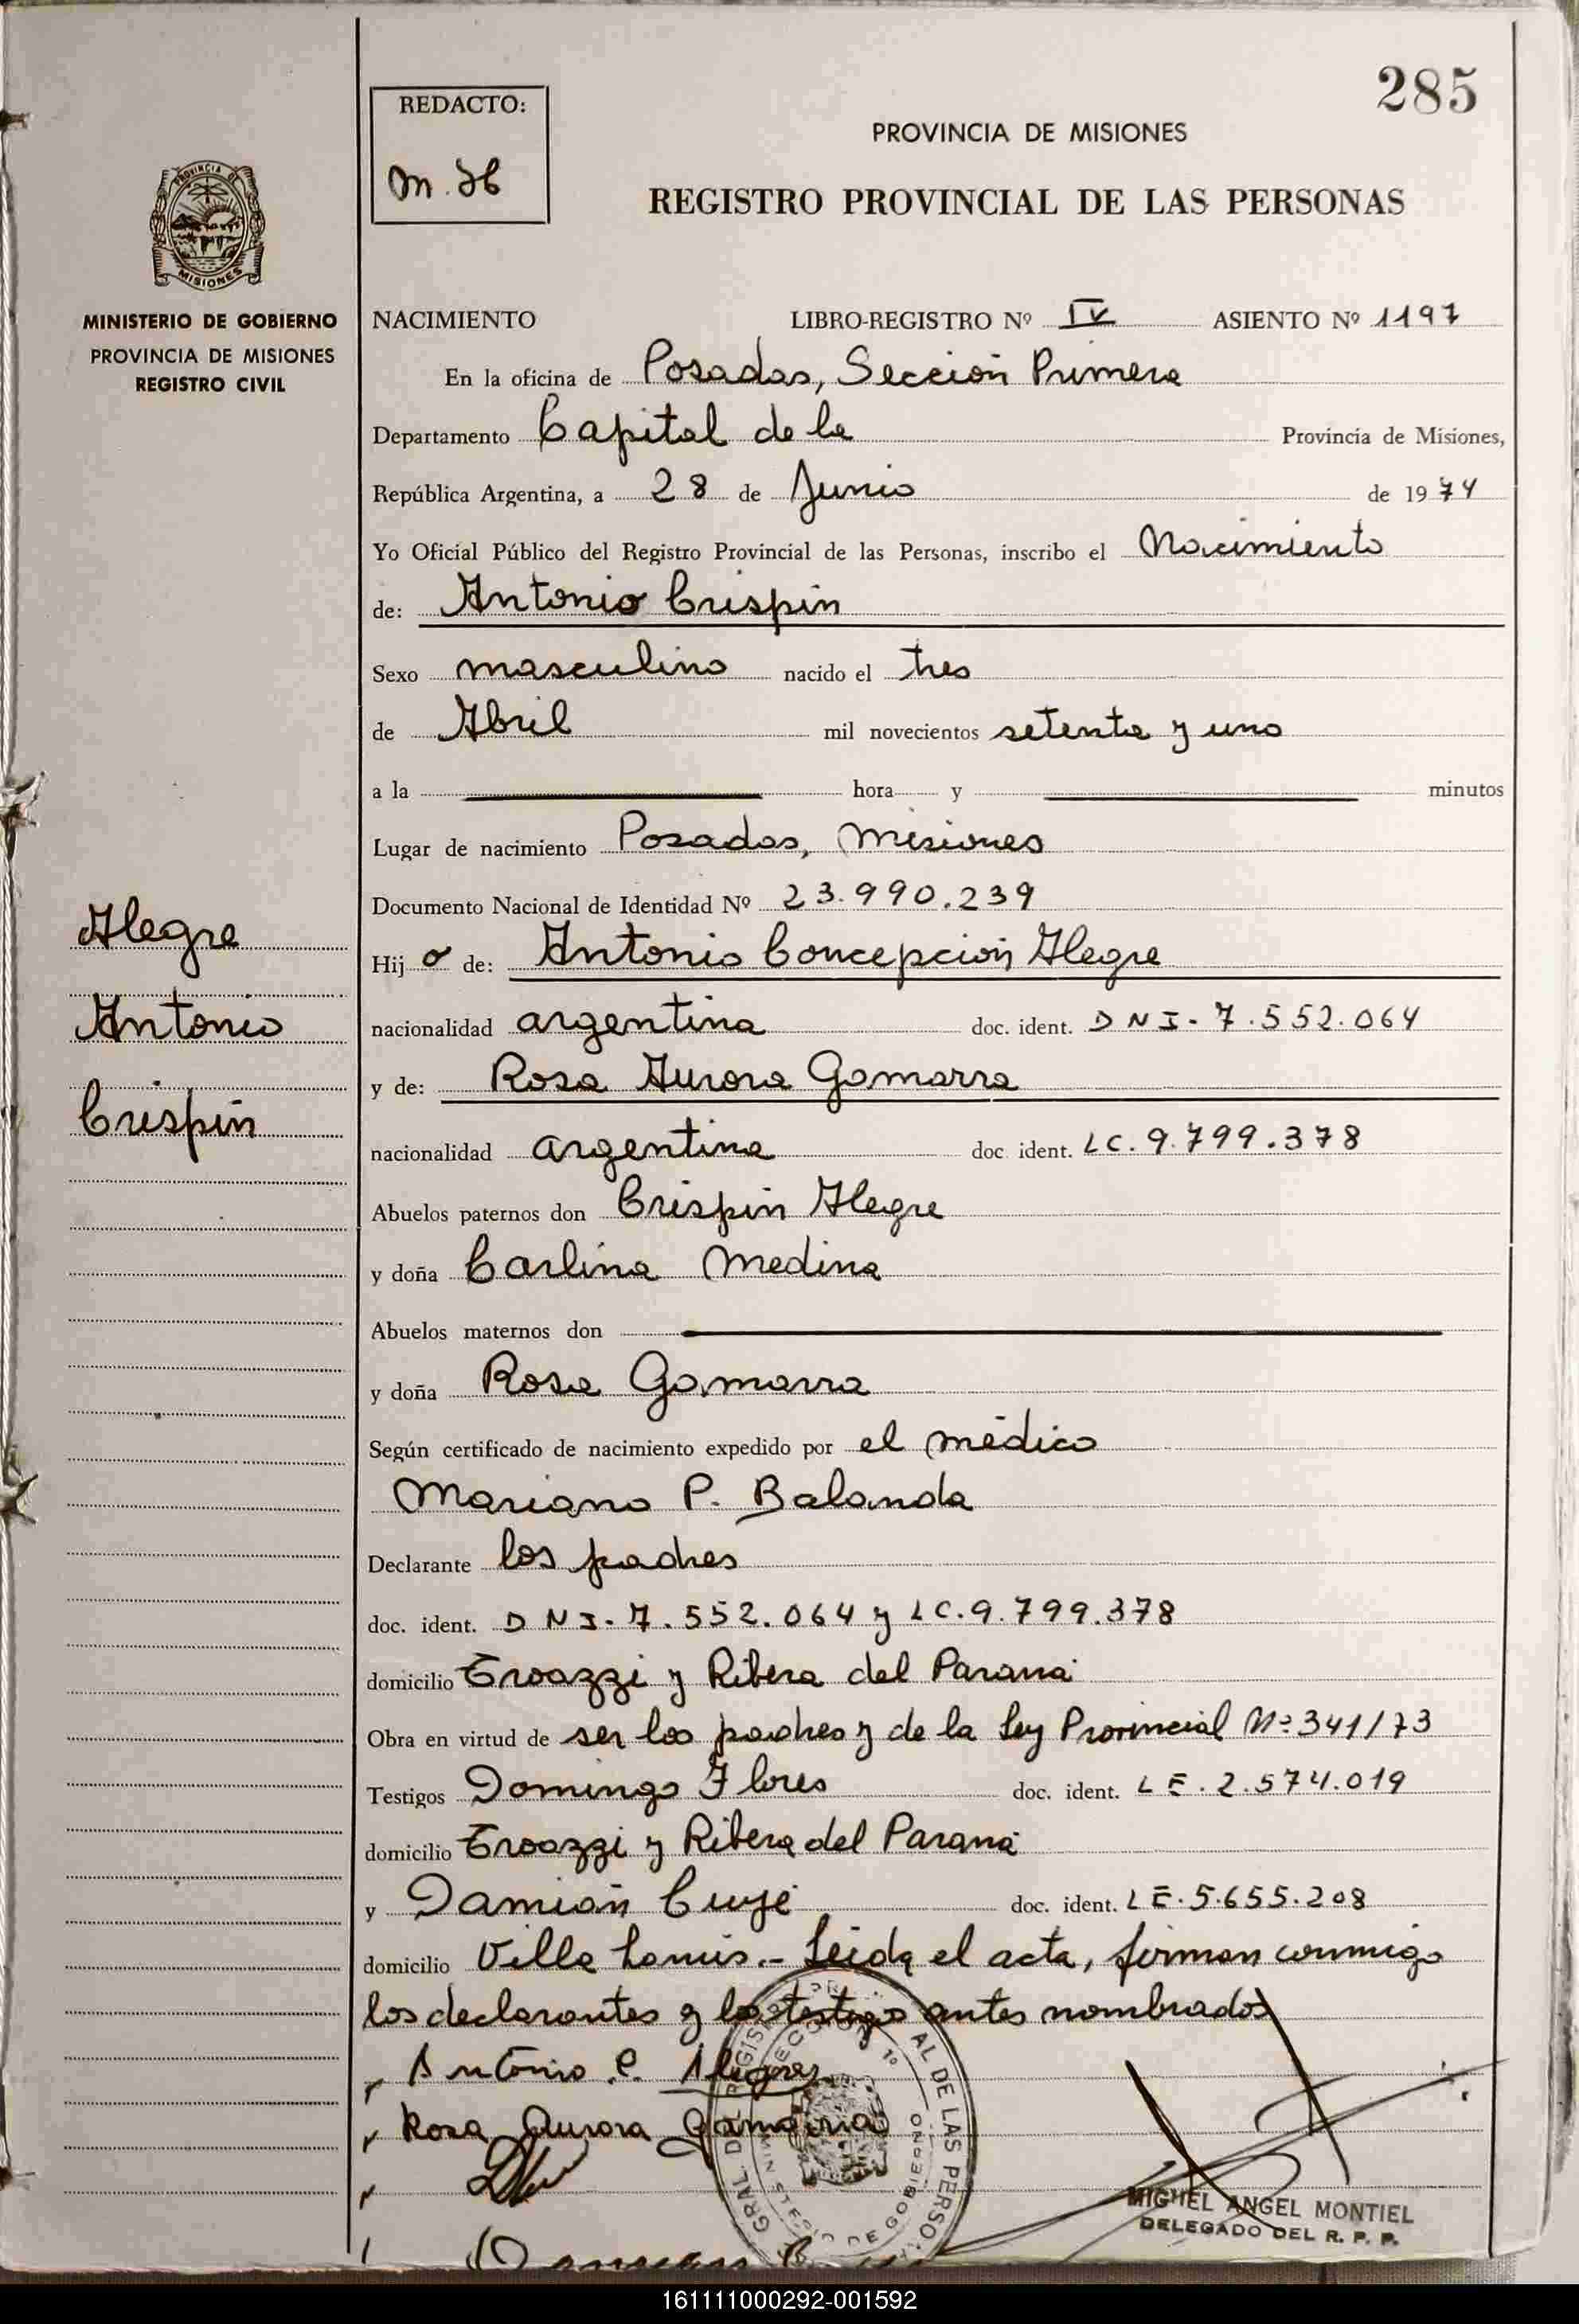 285
REDACTO:
PROVINCIA DE MISIONES
REGISTRO PROVINCIAL DE LAS PERSONAS
PROVINCIA DE
MISIONES
MINISTERIO DE GOBIERNO
PROVINCIA DE MISIONES
REGISTRO CIVIL
NACIMIENTO LIBRO-REGISTRO Nº IV ASIENTO Nº 1197
En la oficina de Posadas, Sección Primera
Departamento Capital de la Provincia de Misiones,
República Argentina, a 28 de Junio de 1974
Yo Oficial Público del Registro Provincial de las Personas, inscribo el Nacimiento
de: Antonio Crispín
Sexo masculino nacido el tres
de Abril mil novecientos setenta y uno
a la hora y minutos
Lugar de nacimiento Posadas, Misiones
Documento Nacional de Identidad Nº 23.990.239
Alegre
Antonio
Crispín
Hijo de: Antonio Concepción Alegre
nacionalidad argentina doc. ident. DNI-7.552.064
y de: Rosa Aurora Gamarra
nacionalidad argentina doc. ident. LC.9.799.378
Abuelos paternos don Crispín Alegre
y doña Carlina Medina
Abuelos maternos don
y doña Rosa Gamarra
Según certificado de nacimiento expedido por el médico
Mariano P. Balanda
Declarante los padres
doc. ident. DNI-7.552.064 y LC.9.799.378
domicilio y Ribera del Paraná
Obra en virtud de ser los padres y de la Ley Provincial Nº 341/73
Testigos Domingo Flores doc. ident. LE.2.574.019
domicilio y Ribera del Paraná
y Damián doc. ident. LE.5.655.208
domicilio Villa Lanús.- Leída el acta, firman conmigo
los declarantes y los testigo antes nombrados
Antonio C. Alegre
Rosa Aurora Gamarra
MIGUEL ANGEL MONTIEL
DELEGADO DEL R. P. P.
161111000292-001592